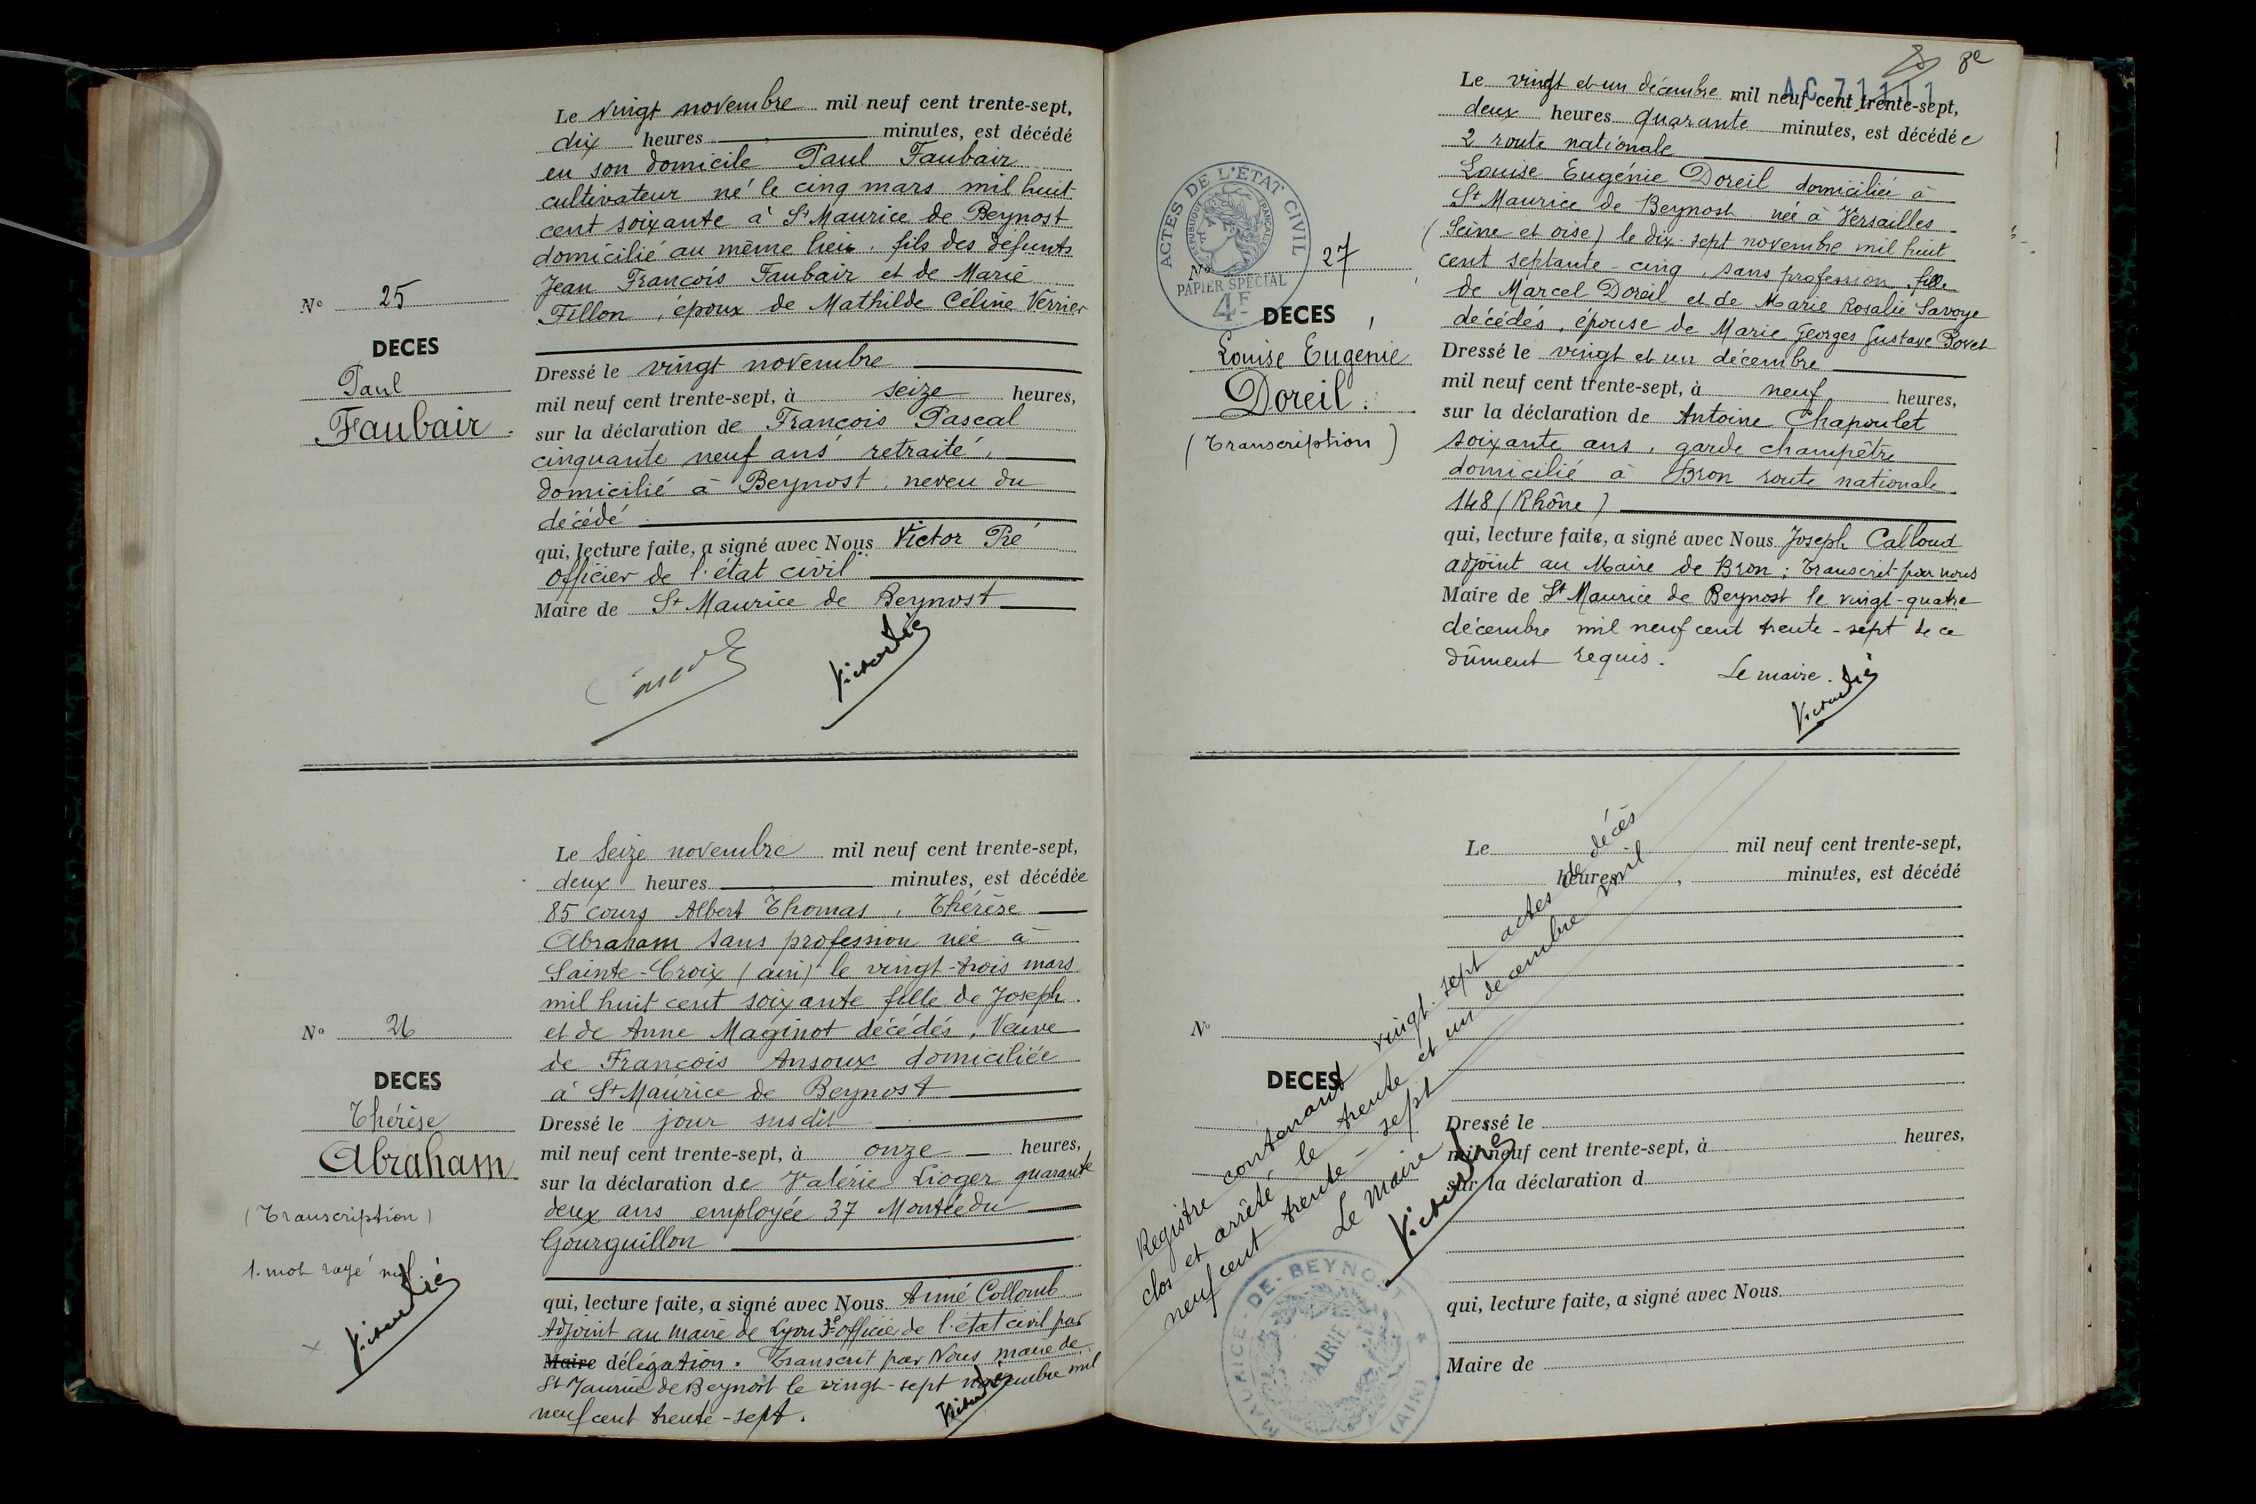 Le vingt novembre mil neuf cent trente-sept,
dix heures minutes, est décédé
en son domicile Paul Faubair
cultivateur né le cinq mars mil huit
cent soixante à St Maurice de Beynost
domicilié au même lieu, fils des défunts
Jean François Faubair et de Marie
Fillon, époux de Mathilde Céline Verrier
N° 25
DECES
Paul
Faubair.
Dressé le vingt novembre
mil neuf cent trente-sept, à seize heures,
sur la déclaration de François Pascal
cinquante neuf ans retraité,
domicilié à Beynost, neveu du
décédé
qui, lecture faite, a signé avec Nous Victor Pré
officier de l'état civil
Maire de St Maurice de Beynost
Le Seize novembre mil neuf cent trente-sept,
deux heures minutes, est décédée
85 cours Albert Thomas, Thérèse
Abraham sans profession née à
Sainte-Croix (ain) le vingt-trois mars
mil huit cent soixante fille de Joseph
et de Anne Maginot décédés, Veuve
de François Ansoux domiciliée
à St Maurice de Beynost
N° 26
DECES
Thérèse
Abraham
(Transcription)
1 mot rayé nul.
Dressé le jour susdit
mil neuf cent trente-sept, à onze heures,
sur la déclaration de Valérie Lioger quarante
deux ans employée 37 Montée du
Gourguillon
qui, lecture faite, a signé avec Nous Aimé Collomb
Adjoint au maire de Lyon 3e officier de l'état civil par
Maire délégation. Transcrit par Nous maire de
St Maurice de Beynost le vingt-sept novembre mil
neuf cent trente-sept.
8e
AC 71111
Le vingt et un décembre mil neuf cent trente-sept,
deux heures quarante minutes, est décédée
2 route nationale
Louise Eugénie Doreil domiciliée à
St Maurice de Beynost née à Versailles
(Seine et oise) le dix-sept novembre mil huit
cent septante-cinq, sans profession, fille
de Marcel Doreil et de Marie Rosalie Savoye
décédés, épouse de Marie Georges Gustave Bovet
ACTES DE L'ETAT CIVIL
REPUBLIQUE FRANCAISE
PAPIER SPECIAL
4F
N° 27
DECES
Louise Eugénie
Doreil.
(Transcription)
Dressé le vingt et un décembre
mil neuf cent trente-sept, à neuf heures,
sur la déclaration de Antoine Chapoulet
soixante ans, garde champêtre
domicilié à Bron route nationale
148 (Rhône)
qui, lecture faite, a signé avec Nous Joseph Calloud
adjoint au Maire de Bron; Transcrit par nous
Maire de St Maurice de Beynost le vingt-quatre
décembre mil neuf cent trente-sept de ce
dûment requis.
Le maire.
Le mil neuf cent trente-sept,
heures, minutes, est décédé
N°
DECES
Dressé le
mil neuf cent trente-sept, à heures,
sur la déclaration d
qui, lecture faite, a signé avec Nous
Maire de
Registre contenant vingt-sept actes de décès
clos et arrêté le trente et un décembre mil
neuf cent trente-sept
Le Maire
MAURICE-DE-BEYNOST
MAIRIE
(AIN)